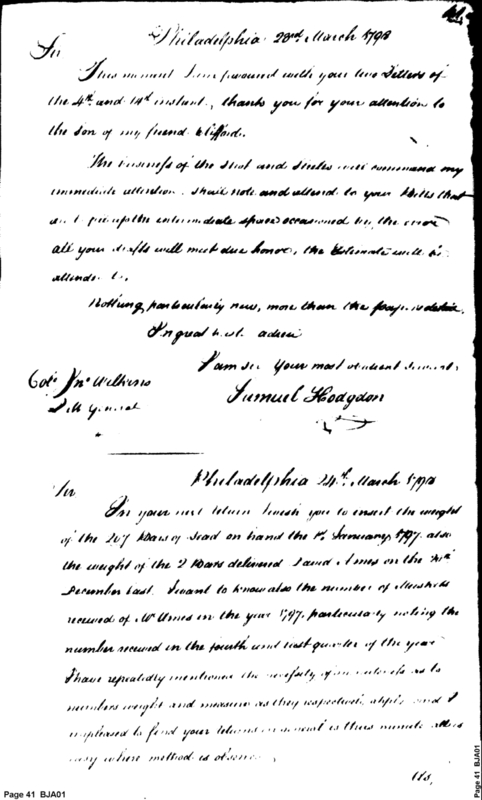 41.
Philadelphia 23rd March 1798
Sir
This moment I am favoured with your two Letters of
the 4th and 14th instant, thank you for your attention to
the son of my friend Clifford.
The business of the Shot and Shells will command my
immediate attention. Shall note and attend to your Bills that
the intermediate space occasioned by the
all your drafts will meet due honor, the Estimate will be
attended to.
Nothing particularly new, more than the papers detail.
In great haste adieu
I am sir Your most obedient servant
Samuel Hodgdon
Colo. Jno Wilkins
Q M General
Philadelphia 24th March 1798
Sir
In your next return I wish you to insert the weight
of the 207 Bars of Lead on hand the 1st January 1797. also
the weight of the 2 Bars delivered David Ames on the
December last. I want to know also the number of Muskets
received of Mr Ames in the year 1797. particularly noting the
number received in the fourth and last quarter of the year
I have repeatedly mentioned the necessity of as to
numbers weight and measure as they respectively apply and I
am pleased to find your returns in general is thus
easy where method is observ
Us
Page 41 BJA01
Page 41 BJA01